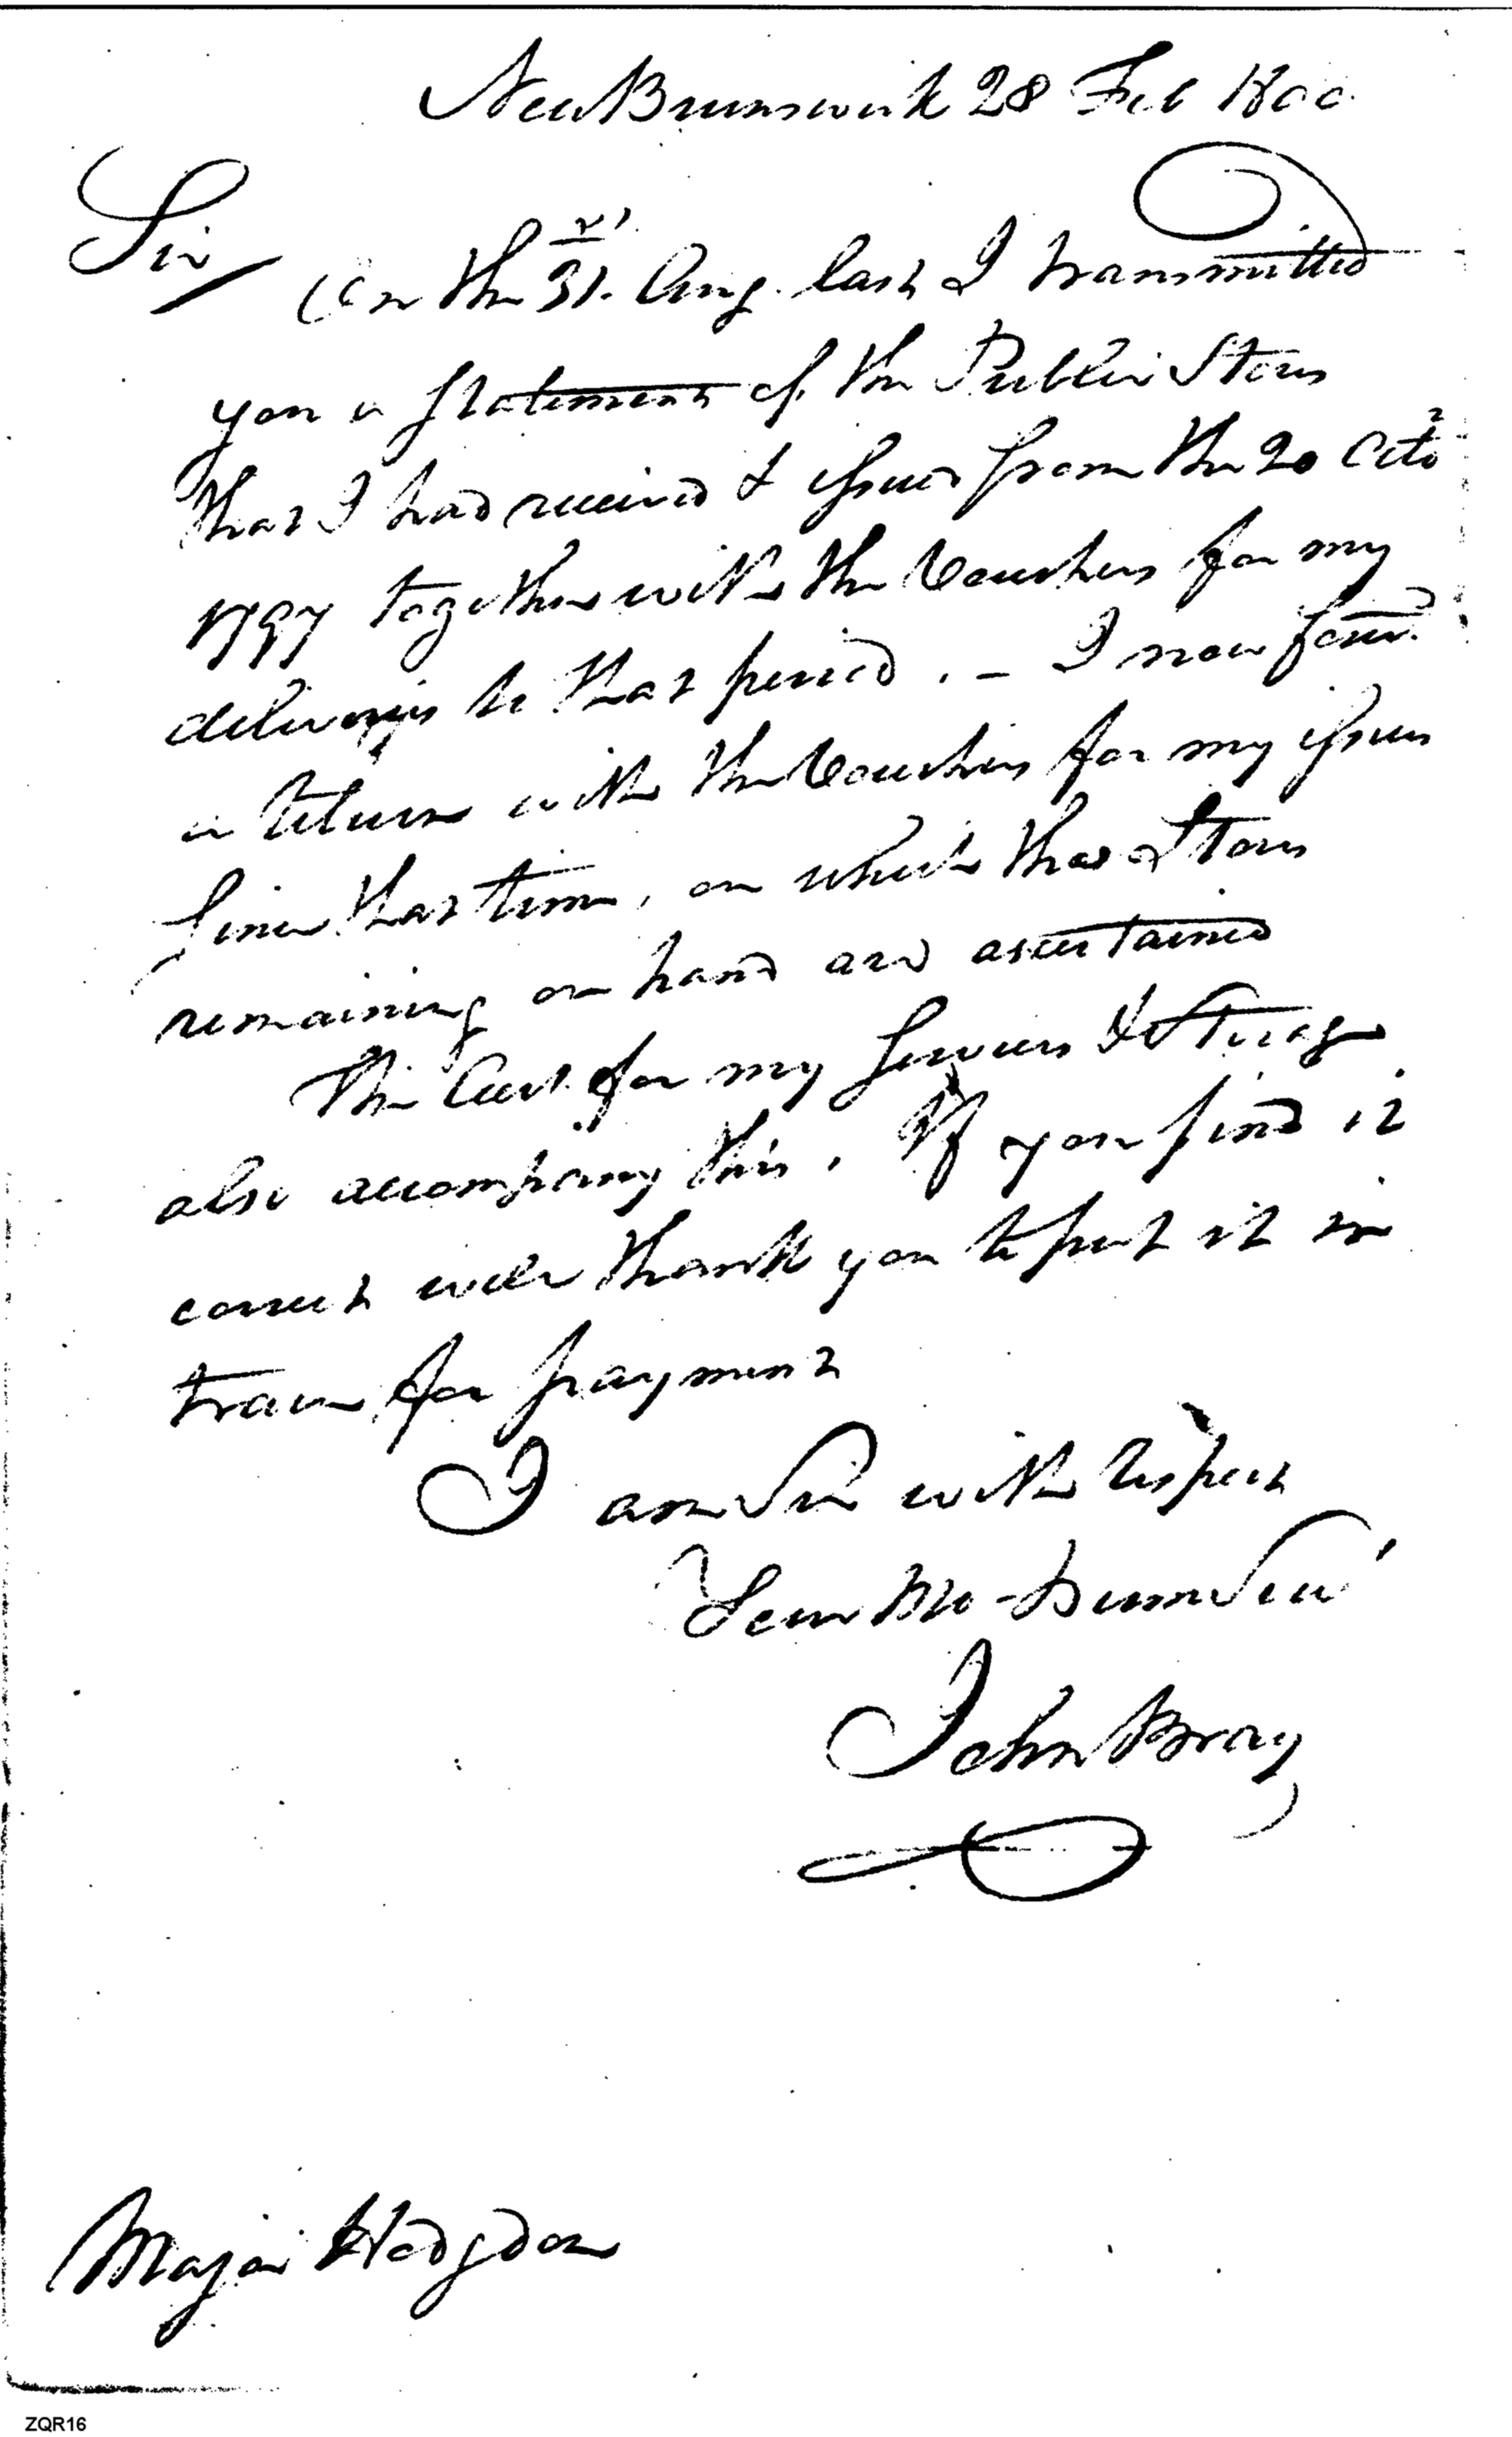 New Brunswick 28 Feb 1800
Sir
On the 31st. Aug. last I transmitted
you a statement of the Public Stores
that I had received & issued from the 20 Octo
1797 together with the Vouchers for my
deliverys to that period. - I now forwd.
a return with the Vouchers for my issues
since that time, on which the Stores
remaining on hand are ascertained
The Acct. for my Services & Storage
also accompany this. If you find it
correct will thank you to put it in
train for payment
I am Sir with respect
Your Mo- Hum Ser
John Bray
Major Hodgdon
ZQR16